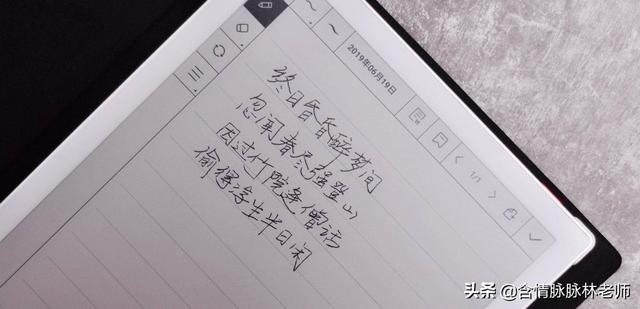 2019年06月19日
1/1
终日昏昏醉梦间
忽闻春尽强登山
因过竹院逢僧话
偷得浮生半日闲
头条 @含情脉脉林老师